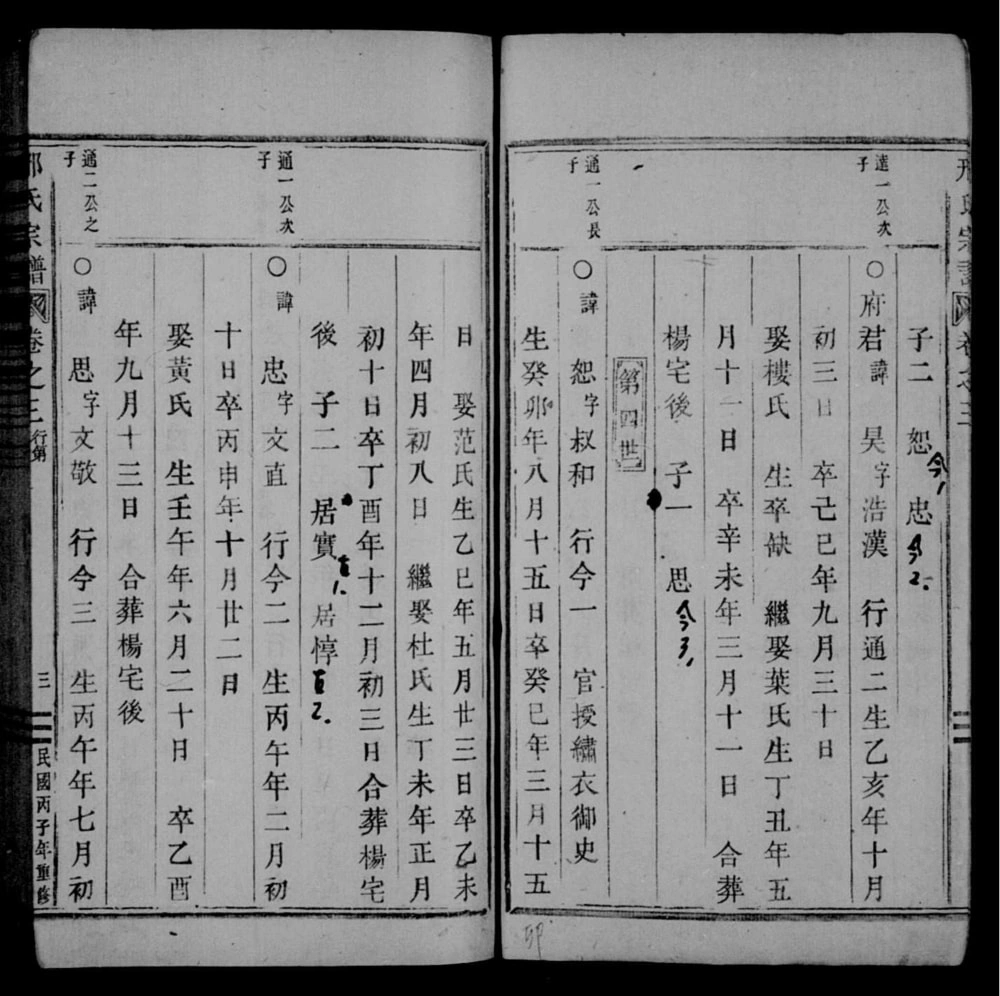 邢氏宗譜
卷之三
達一公次子
子二 恕 忠
今1
今2
○府君諱昊字浩漢 行通二生乙亥年十月
初三日 卒己巳年九月三十日
娶樓氏 生卒缺 繼娶葉氏生丁丑年五
月十一日 卒辛未年三月十一日 合葬
楊宅後 子一 思
今3
第四世
通一公長子
○諱恕字叔和 行今一 官授繡衣御史
生癸卯年八月十五日卒癸巳年三月十五
日 娶范氏生乙巳年五月廿三日卒乙未
年四月初八日 繼娶杜氏生丁未年正月
初十日卒丁酉年十二月初三日合葬楊宅
後 子二 居實 居惇
百1
百2
通一公次子
○諱忠字文直 行今二 生丙午年二月初
十日卒丙申年十月廿二日
娶黃氏 生壬午年六月二十日 卒乙酉
年九月十三日 合葬楊宅後
通二公之子
○諱思字文敬 行今三 生丙午年七月初
邢氏宗譜 卷之三 行第 三 民國丙子年重修